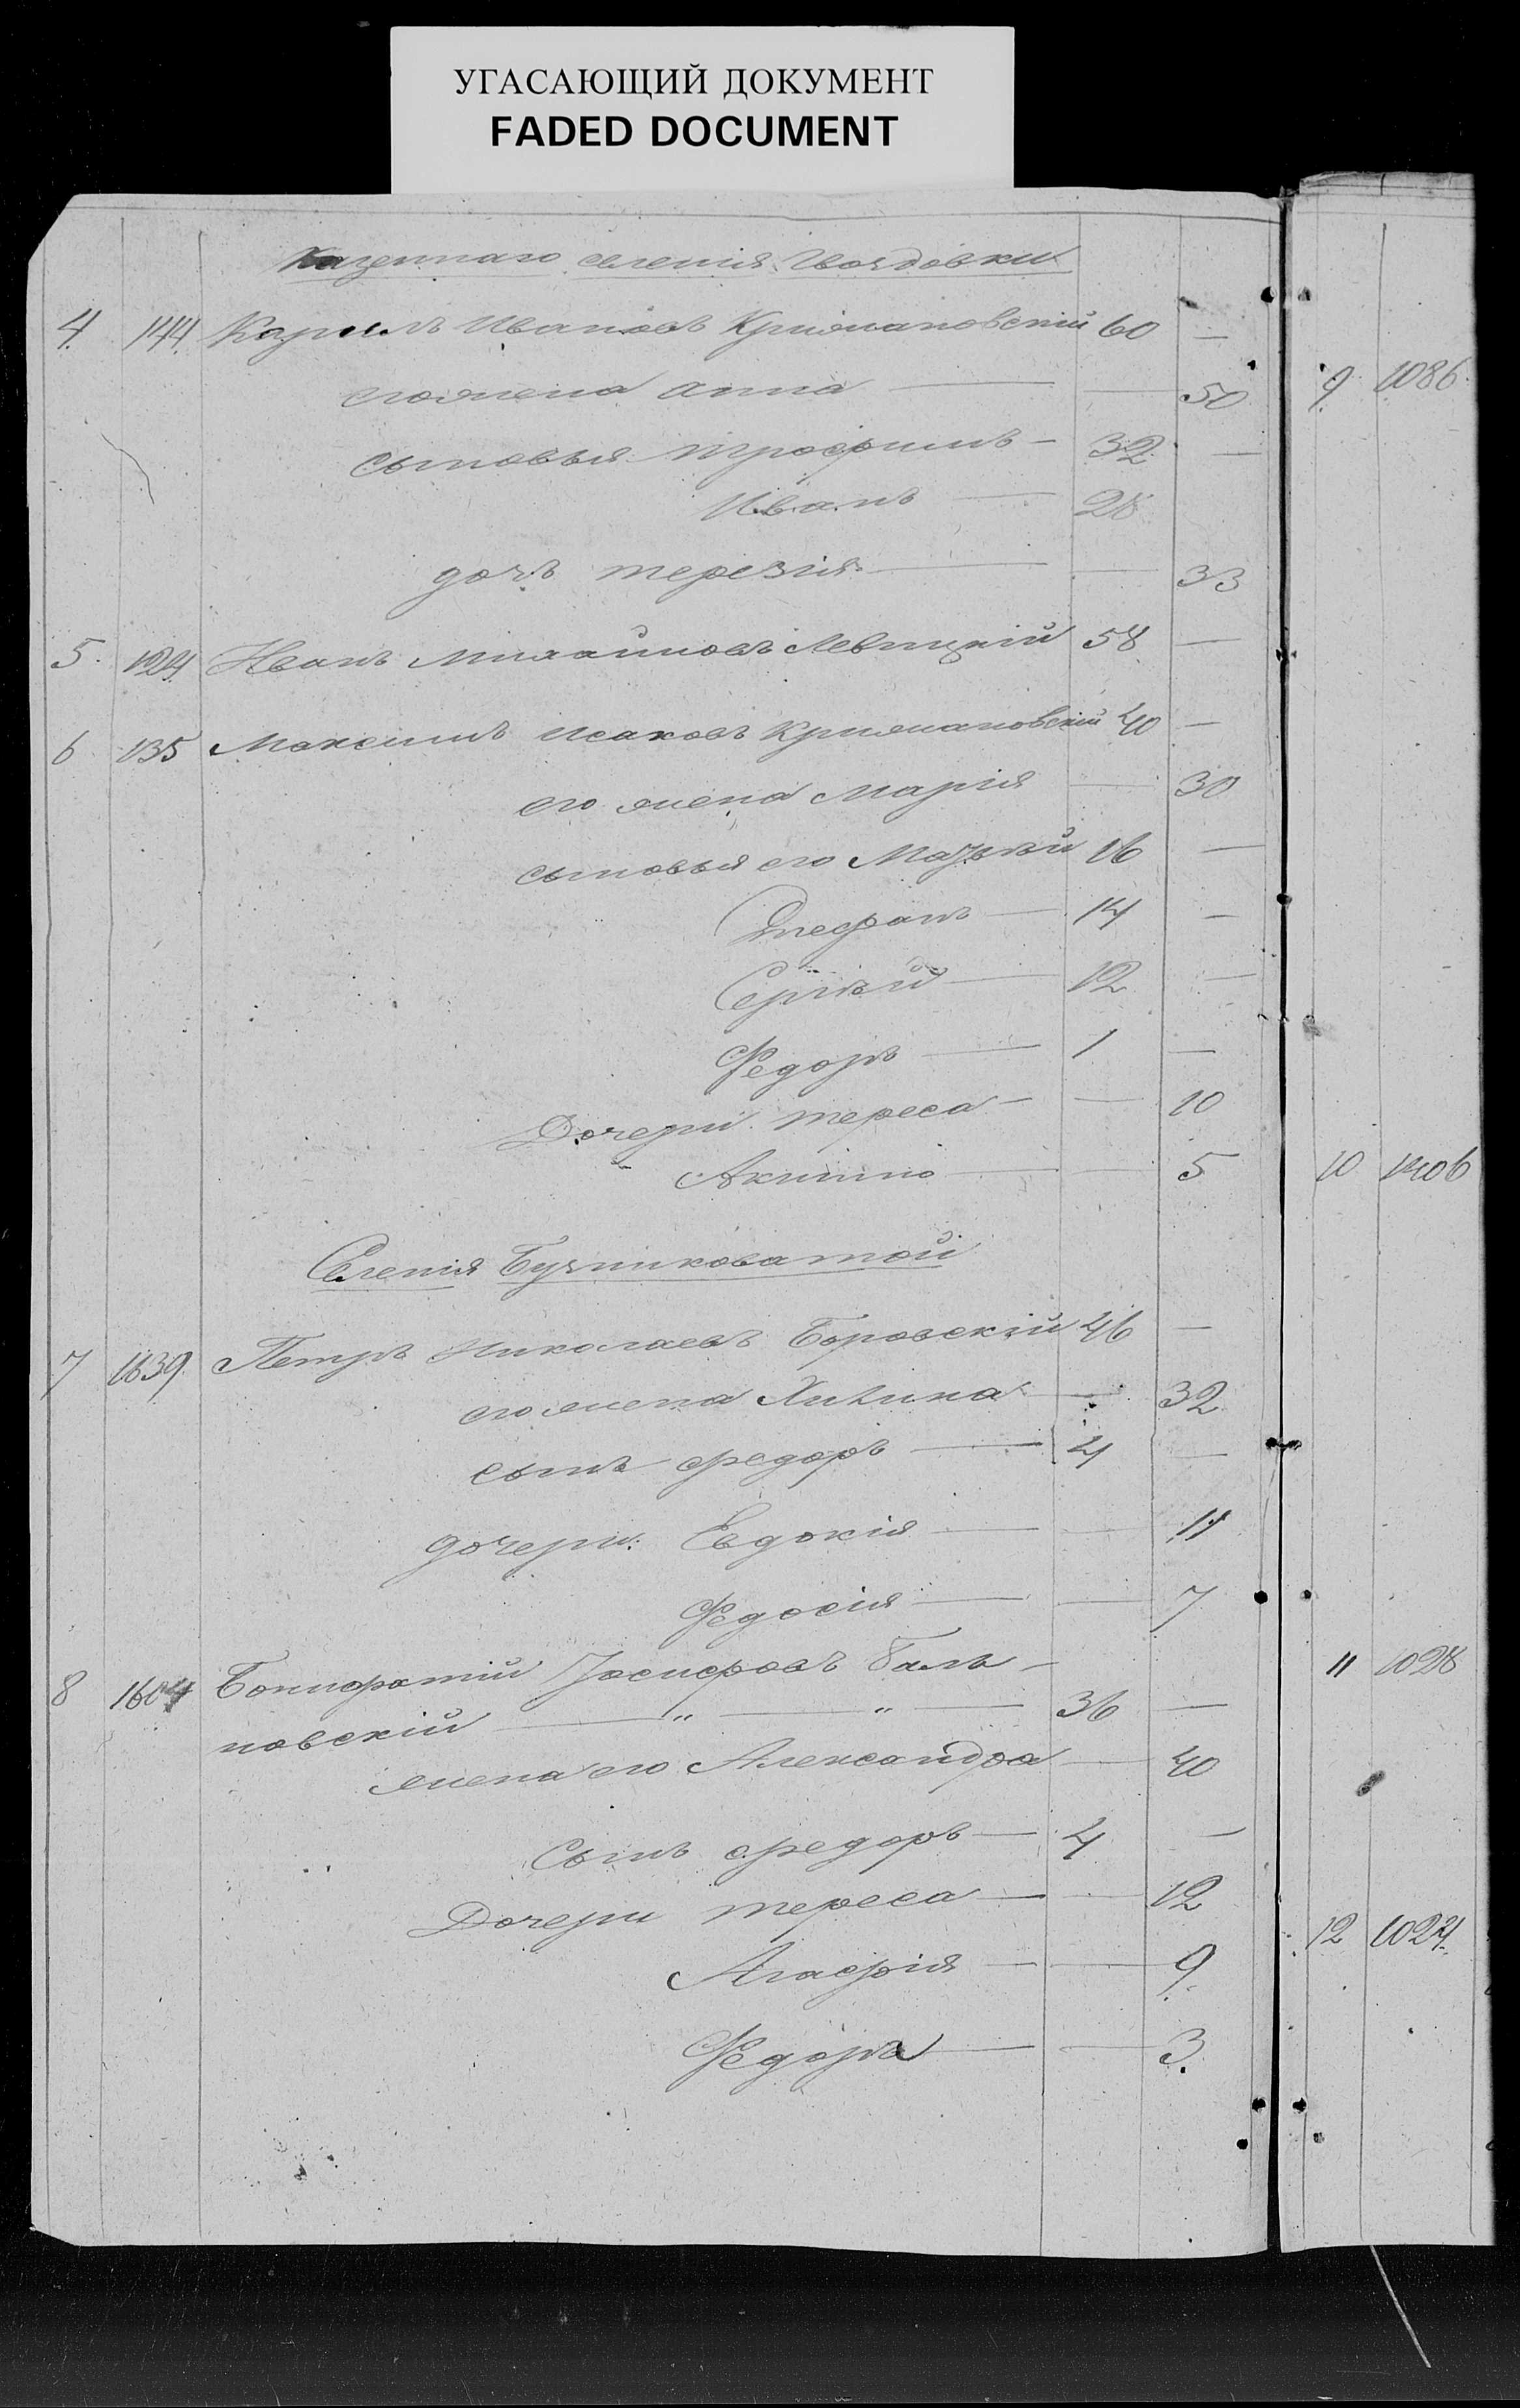 УГАСАЮЩИЙ ДОКУМЕНТ
FADED DOCUMENT
Казеннаго селенія Гвоздовки
4. 144. Кирилъ Ивановъ Крижановскій 60 —
его жена Анна — — 50
сыновья Трофимъ — 32 —
Иванъ — 28
дочь Терезія — — 33
5. 124 Иванъ Левицкій 58 —
6 135 Максимъ Исаковъ Крижановскій 40 —
его жена Марія — 30
сыновья его 16 —
Стефанъ — 14 —
Сергѣй — 12 —
Федоръ — 1 —
Дочери Тереса — — 10
— — 5
Селенія
7 1639. Петръ Николаевъ Боровскій 46 —
его жена — 32
сынъ федоръ — 4 —
дочери: Евдокія — — 11
Федосія — — 7
8 1604 Бонифатій Іосифовъ Баль-
новскій — " — " — 36 —
жена его Александра — 40
Сынъ федоръ — 4 —
Дочери Тереса — — 12
Агафія — — 9.
Федора — — 3.
9. 1086.
10 1406
11 1028
12 1024.